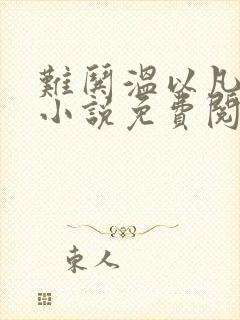 難鬨溫以凡
小說免費閱
東人